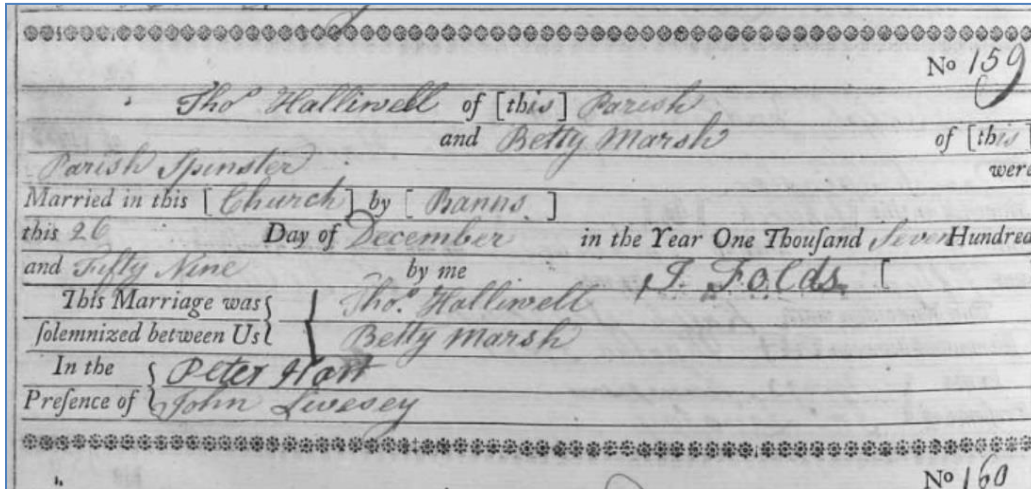 No 159
Tho.s Halliwell of [this] Parish
and Betty Marsh of [this]
Parish Spinster were
Married in this [Church] by [Banns]
this 26 Day of December in the Year One Thouſand Seven Hundred
and Fifty Nine by me J. Folds [
This Marriage was { Tho.s Halliwell
ſolemnized between Us { Betty Marsh
In the { Peter Hart
Preſence of { John Livesey
No 160